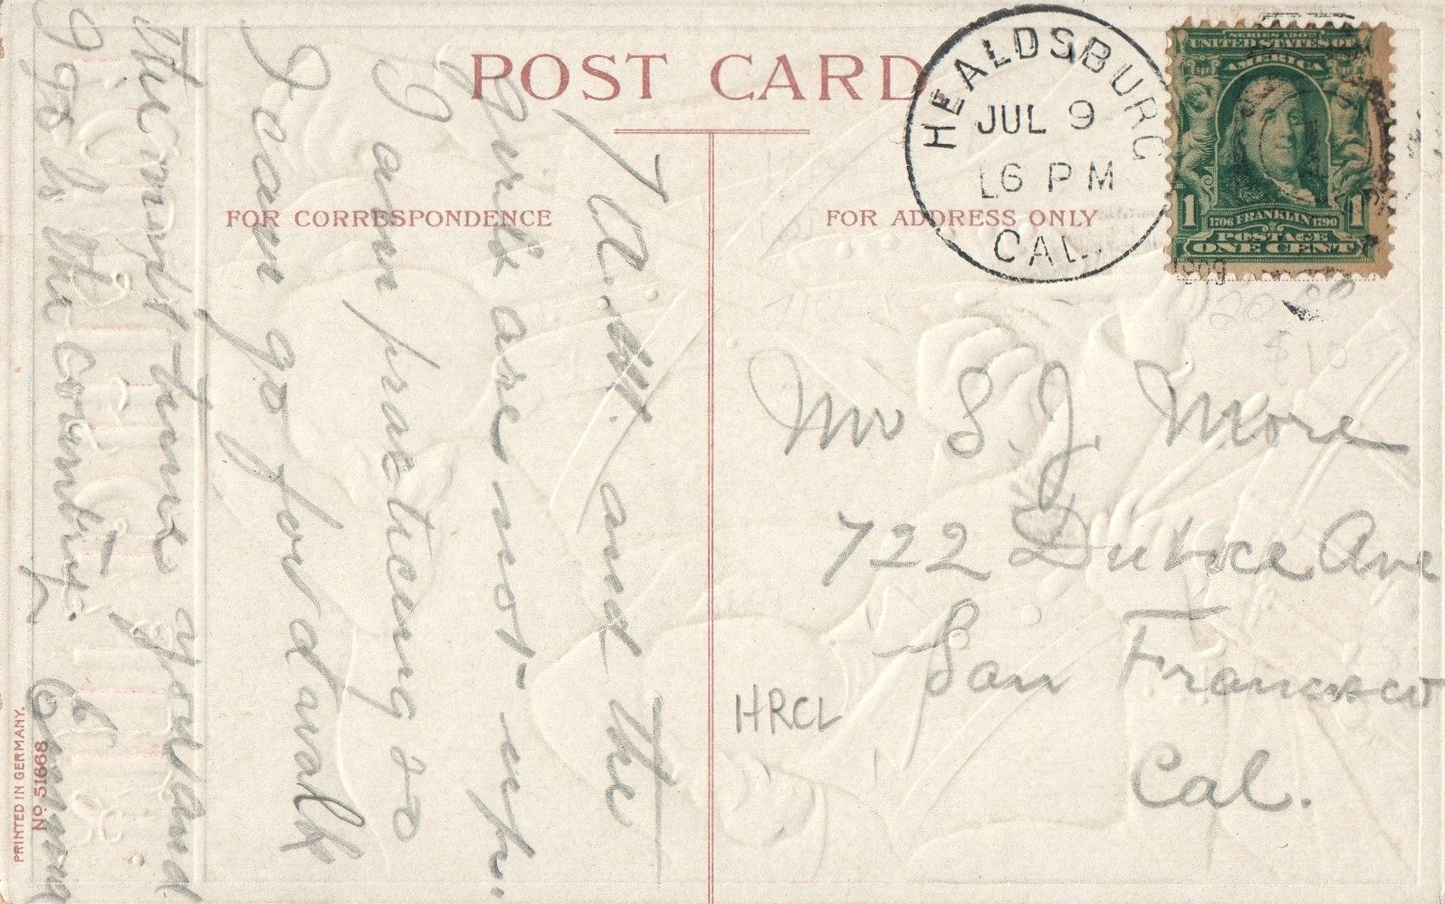 POST CARD
FOR CORRESPONDENCE
FOR ADDRESS ONLY
HEALDSBURG
JUL 9
6 PM
CAL.
1909
SERIES 1902
UNITED STATES OF
AMERICA
1 1
1706 FRANKLIN 1790
POSTAGE
ONE CENT
$10
7 A.M. and the
girls are not up.
I am practicing so
I can go for a walk
the next time you and
I go to the country.
Emma
Mr S. J. More
722 Duboce Ave
San Francisco
Cal.
HRCL
PRINTED IN GERMANY.
No. 51668